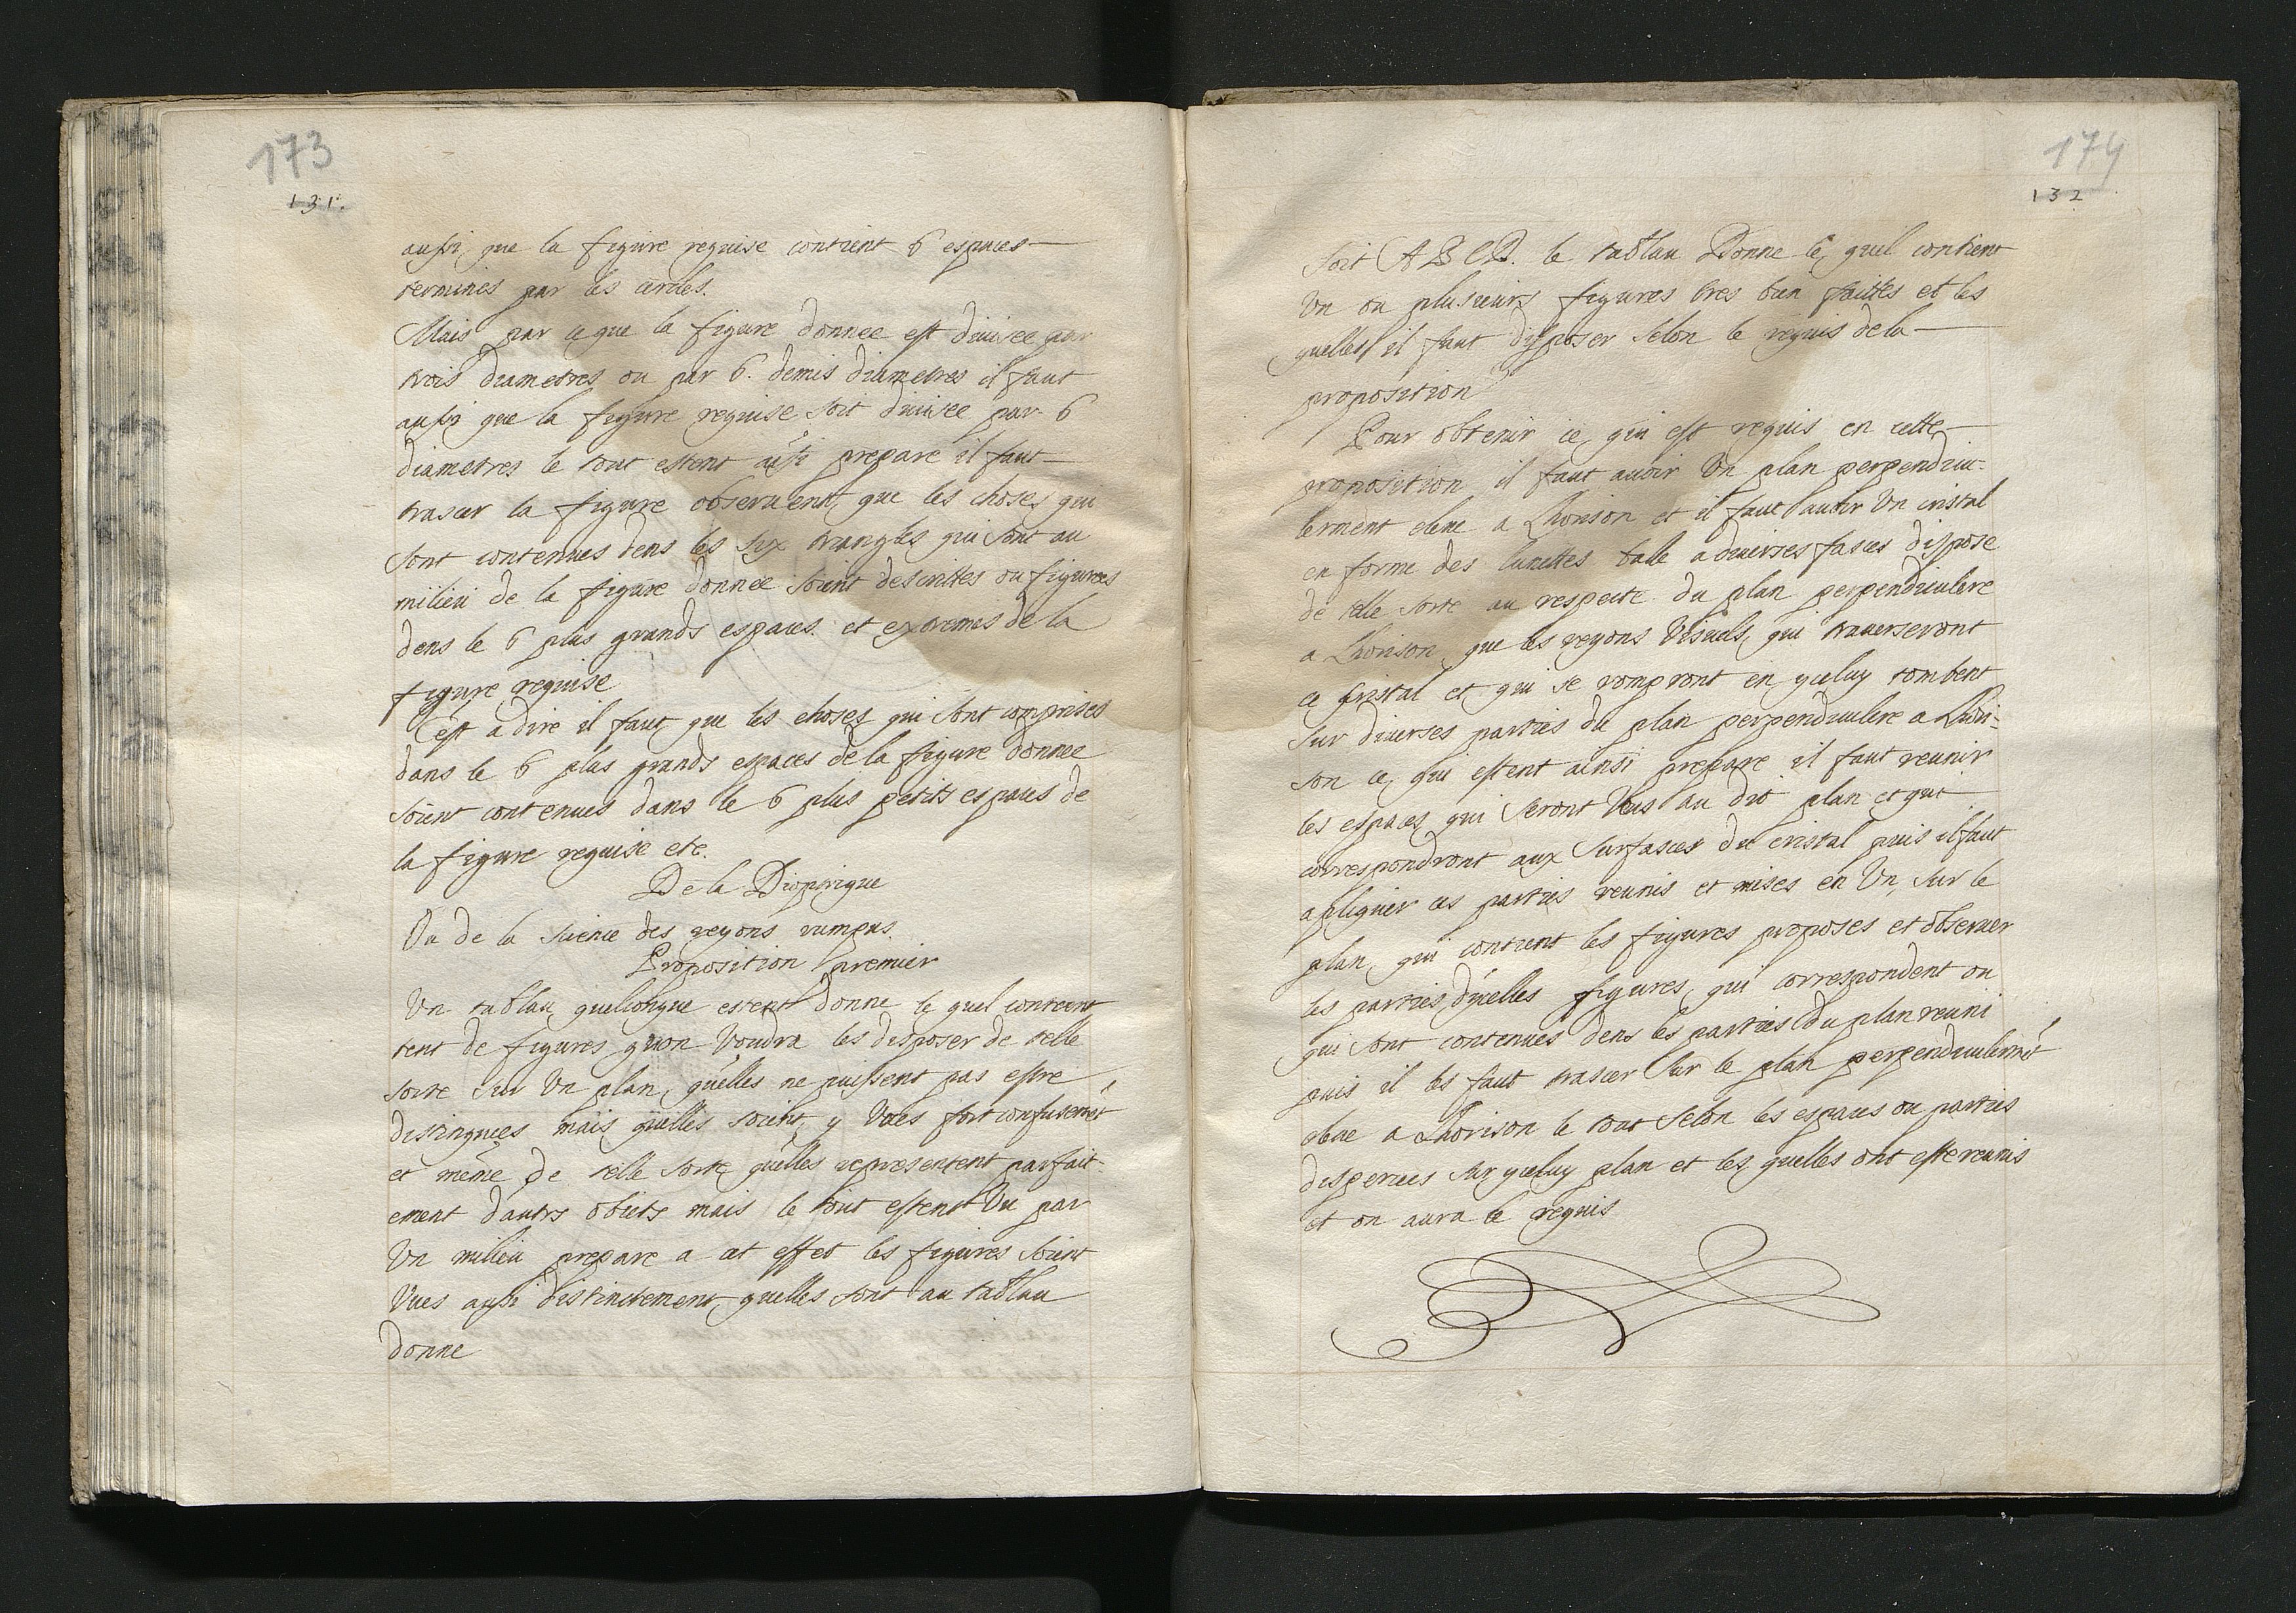 173
131.
aussi que la figure requise contient 6 espaces
termines par les arcles.
Mais par ce que la figure donnee est diuisee par
trois diametres ou par 6. demis diametres il faut
aussi que la figure requise soit diuisee par 6
diametres le tout estent aĩsi prepare il faut
traser la figure obseruent que les choses qui
sont contenues dens les six triangles qui sont au
milieu de la figure donnee soient descrittes ou figurees
dens le 6 plus grands espaces et extremes de la
figure requise
C'est a dire il faut que les choses qui sont comprises
dans le 6 plus grands espaces de la figure donnee
soient contenues dans le 6 plus petits espaces de
la figure requise etc.
De la Dioptrique
Ou de la science des reyons rumpus.
Proposition premier
Un tablau quelconque estent donne le quel contient
tent de figures qu'on voudra les disposer de telle
sorte sur Un plan qu'elles ne puissent pas estre
distingues mais qu'elles soient y Vues fort confusem̃et
et même de telle sorte qu'elles representent parfait-
ement d'autrs obiets mais le tout estent Vu par
Un milieu prepare a cet effet les figures soient
Vues aussi distinctement quelles sont au tablau
donne
174
132
Soit A B C D. le tablau Donne le quel contient
Un ou plusieurs figures tres bien faittes et les
quelles il faut disposer selon le requis de la
proposition
Pour obtenir ce qui est requis en cette
proposition il faut auoir Un plan perpendicu-
lerment eleue a Lhorison et il faut auoir Un cristal
en forme des lunettes talle a diuerses fases dispose
de telle sorte au respecte du plan perpendiculere
a Lhorison que les reyons Visuels qui trauerseront
ce cristal et qui se rompront en yceluy tombent
sur diuerses parties du plan perpendiculere a Lhori-
son ce qui estent ainsi prepare il faut reunir
les espaces qui seront Vus au dit plan et qui
correspondront aux surfases du cristal puis il faut
apliquer ces parties reunis et mises en Un sur le
plan qui contient les figures proposes et obseruer
les parties d'ycelles figures qui correspondent ou
qui sont contenues dens les parties du plan reuni
puis il les faut traser sur le plan perpendiculerm̃et
eleue a Lhorison le tout selon les espaces ou parties
disperces sur yceluy plan et les quelles ont este reunis
et on aura le requis